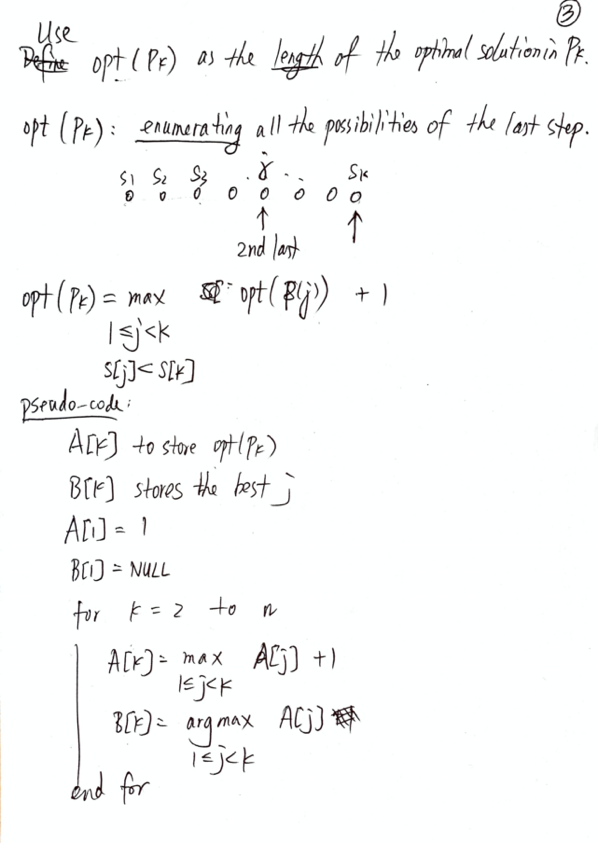 ③
Use
opt (Pk) as the length of the optimal solution in Pk.
opt (Pk): enumerating all the possibilities of the last step.
S1 S2 S3 . j . . Sk
2nd last
opt (Pk) = max opt (P(j)) + 1
1≤j<k
S[j]<S[k]
pseudo-code:
A[k] to store opt(Pk)
B[k] stores the best j
A[1] = 1
B[1] = NULL
for k = 2 to n
A[k] = max A[j] + 1
1≤j<k
B[k] = argmax A[j]
1≤j<k
end for